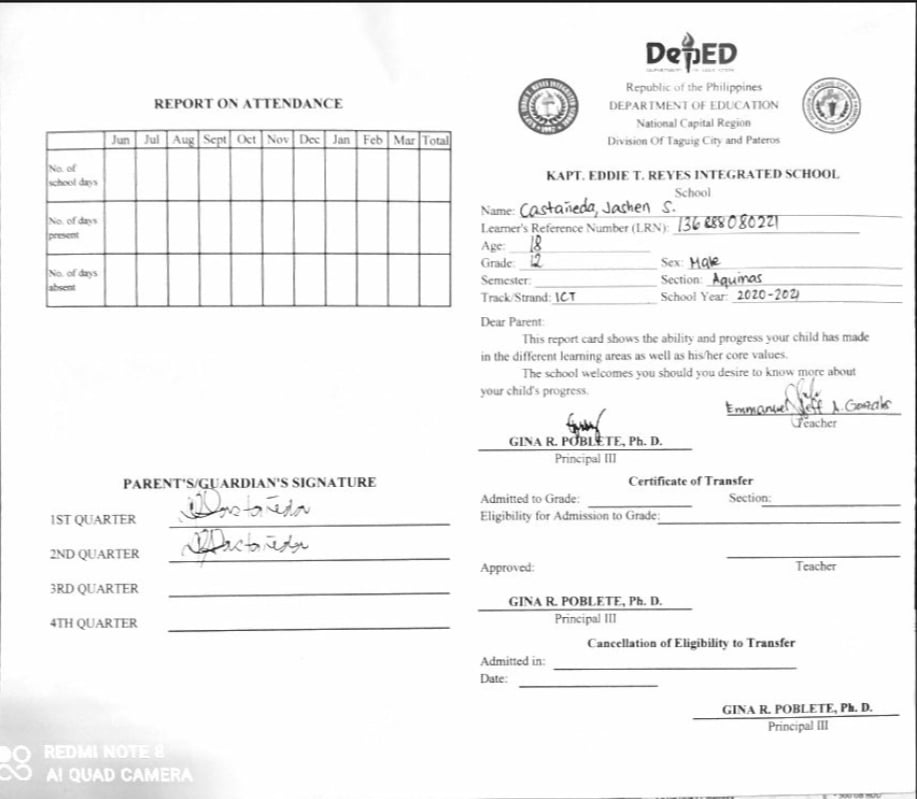 REPORT ON ATTENDANCE
Jun Jul Aug Sept Oct Nov Dec Jan Feb Mar Total
No. of
school days
No. of days
present
No. of days
absent
PARENT'S/GUARDIAN'S SIGNATURE
1ST QUARTER
2ND QUARTER
3RD QUARTER
4TH QUARTER
DepED
DEPARTMENT OF EDUCATION
Republic of the Philippines
DEPARTMENT OF EDUCATION
National Capital Region
Division Of Taguig City and Pateros
KAPT. EDDIE T. REYES INTEGRATED SCHOOL
School
Name: Castañeda, Jashen S.
Learner's Reference Number (LRN): 136888080221
Age: 18
Grade: 12 Sex: Male
Semester: Section: Aquinas
Track/Strand: ICT School Year: 2020-2021
Dear Parent:
This report card shows the ability and progress your child has made
in the different learning areas as well as his/her core values.
The school welcomes you should you desire to know more about
your child's progress.
Emmanuel Jeff A. Gonzales
Teacher
GINA R. POBLETE, Ph. D.
Principal III
Certificate of Transfer
Admitted to Grade: Section:
Eligibility for Admission to Grade:
Approved: Teacher
GINA R. POBLETE, Ph. D.
Principal III
Cancellation of Eligibility to Transfer
Admitted in:
Date:
GINA R. POBLETE, Ph. D.
Principal III
REDMI NOTE 8
AI QUAD CAMERA